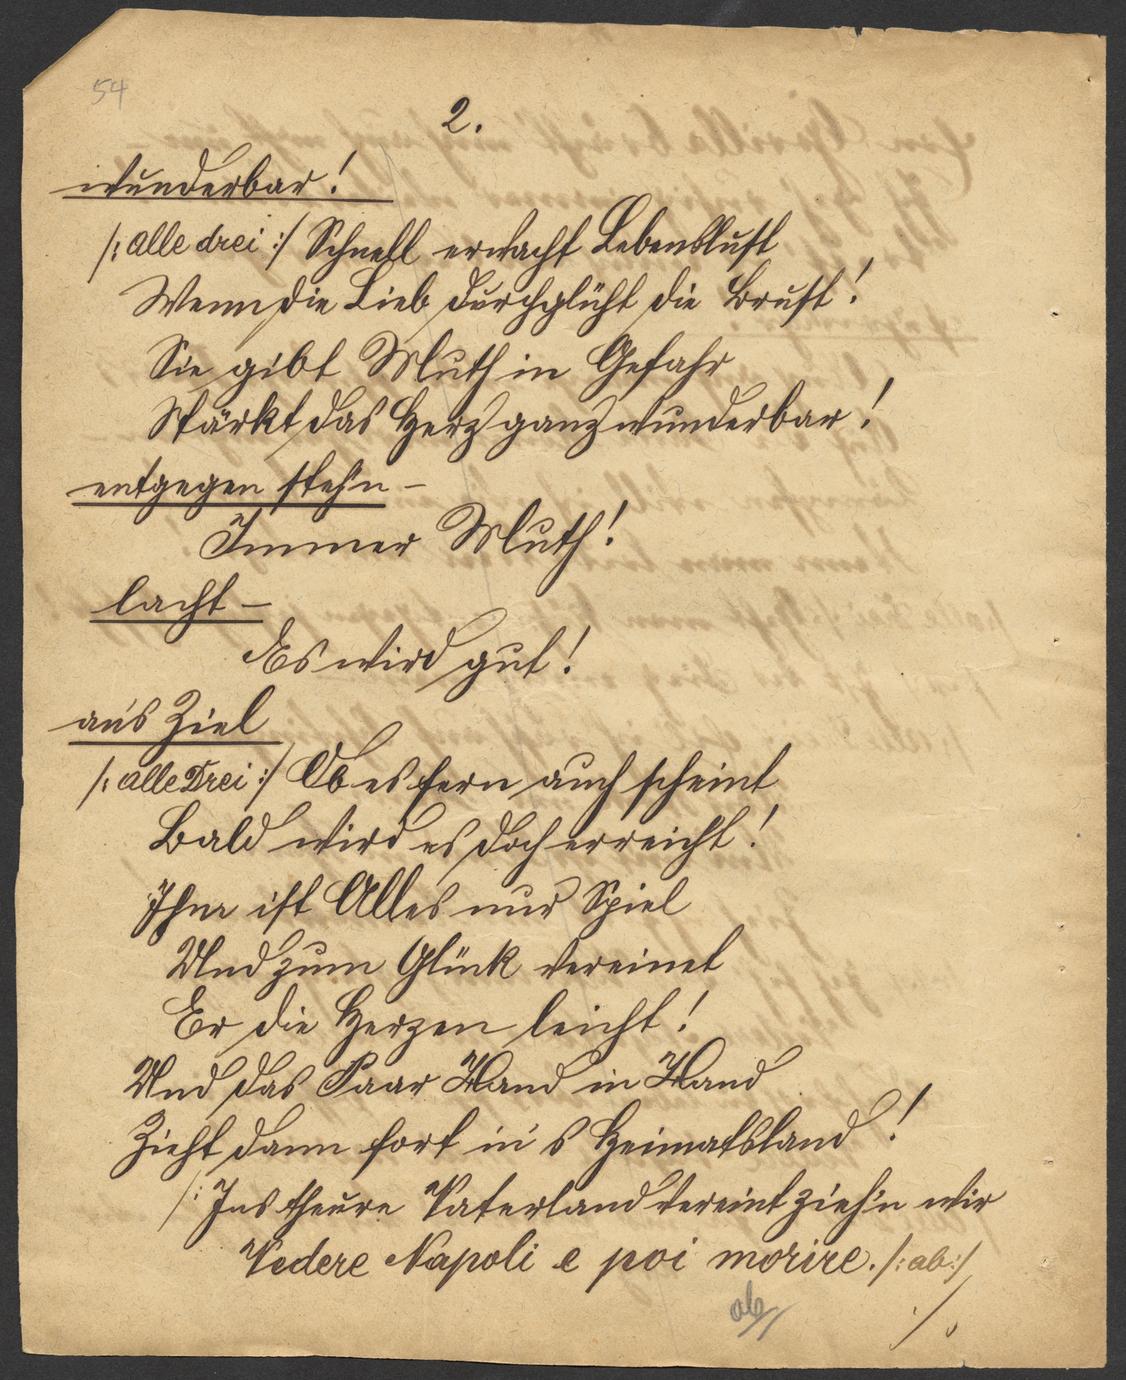 54
2.
wunderbar!
/: alle drei :/ Schnell erwacht Lebenslust
Wenn die Lieb durchglüht die Brust!
Sie gibt Muth in Gefahr
Stärkt das Herz ganz wunderbar!
entgegen steh'n –
Immer Muth!
lacht –
Es wird gut!
an's Ziel
/: alle Drei :/ Ob es fern auch scheint
Bald wird es doch erreicht!
Ihm ist Alles nur Spiel
Und zum Glück vereinet
Er die Herzen leicht!
Und das Paar Hand in Hand
Zieht dann fort in's Heimatsland!
/: Ins theure Vaterland vereint zieh'n wir
Vedere Napoli e poi morire. /: ab :/
ab